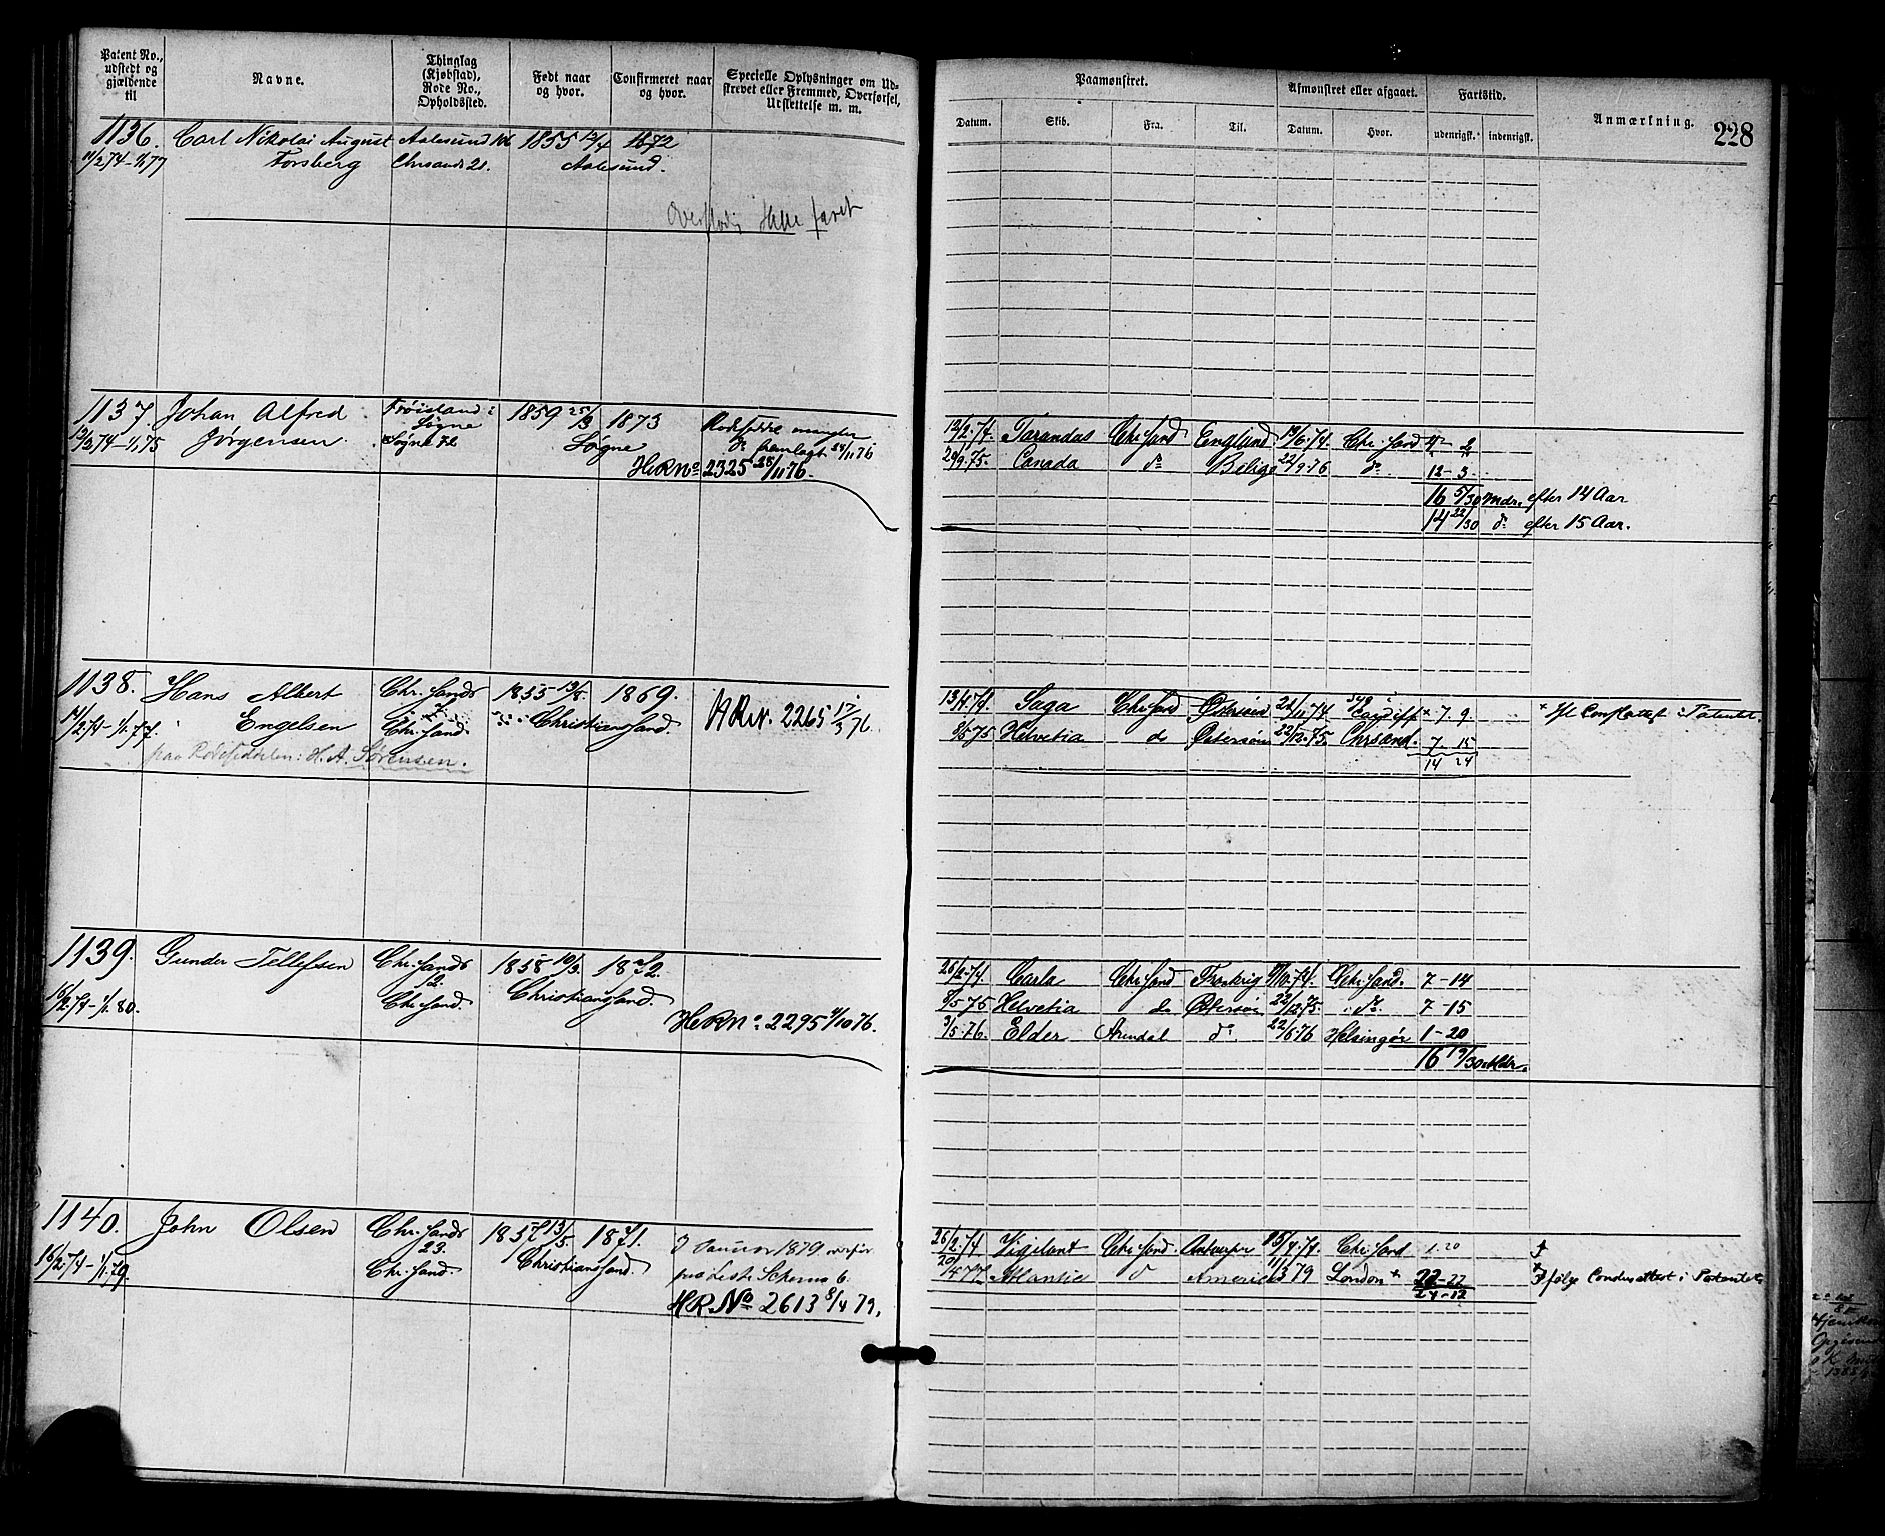 Patent No., udstedt og gjældende til
Navne.
Thinglag (Kjøbstad), Rode No., Opholdssted.
Født naar og hvor.
Confirmeret naar og hvor.
Specielle Oplysninger om Udskrevet eller Fremmed, Overførsel, Udslettelse m. m.
Paamønstret.
Afmønstret eller afgaaet.
Fartstid.
Anmærkning.
228
Datum.
Skib.
Fra.
Til.
Datum.
Hvor.
udenrigsk.
indenrigsk.
1136. Carl Nikolai August Aalesund 1855 12/4 1872
11/2 74-1/1 77 Forsberg Chrsands 21. Aalesund.
1137. Johan Alfred Frøisland i Søgne 1859 25/3 1873
74-1/1 75 Jørgensen Søgne 72 Søgne
fremlagt 28/11 76
HRNo 2325 28/11 76.
12/2.74. Tarandas Chr.sand England 14/6.74. Chr.sand 4-2
20/9.75. Canada do Belige 22/9.76 do 12-3
16 5/30 Mdr. efter 14 Aar
14 22/30 do efter 15 Aar.
1138. Hans Albert Chr.sands 7 1855 13/8. 1869.
14/2.74-1/1.77. Engelsen Chr.sand. Christianssand. HRN. 2265 17/5 76.
paa Rodesedlen: H. A. Sørensen.
13/4.74. Saga Chr.sand Østersøen 22/11.74 Cardiff * 7. 9 * Ifl. Cond.attest i Patentet.
8/5.75 Helvetia do Østersøen 22/12.75. Chrsand. 7 15
14 24
1139. Gunder Tellefsen Chr.sands 2. 1858 10/3. 1872.
16/2.74-1/1.80. Chr.sand. Christianssand.
HRNo. 2295 4/10 76.
26/2.74. Carla Chr.sand 9/10.74. Chr.sand. 7-14
8/5.75 Helvetia do Østersøen 22/12.75. do. 7-15
3/5.76. Elder Arendal do. 22/6.76 Helsingør 1-20
16 19/30 Mdr.
1140. John Olsen Chr.sands 23. 1857 13/5. 1871.
16/2.74-1/1.79. Chr.sand. Christianssand.
I Januar 1879 overfør
paa Liste Schema 6.
HRNo 2613 8/4 79.
26/2.74 Vigilant Chr.sand. Antwerpen 15/4.74. Chr.sand 1.20
20/4 77 Atlantic do America 11/3 79 London * 22-22 * Ifølge Conduiteattest i Patentet
24-12